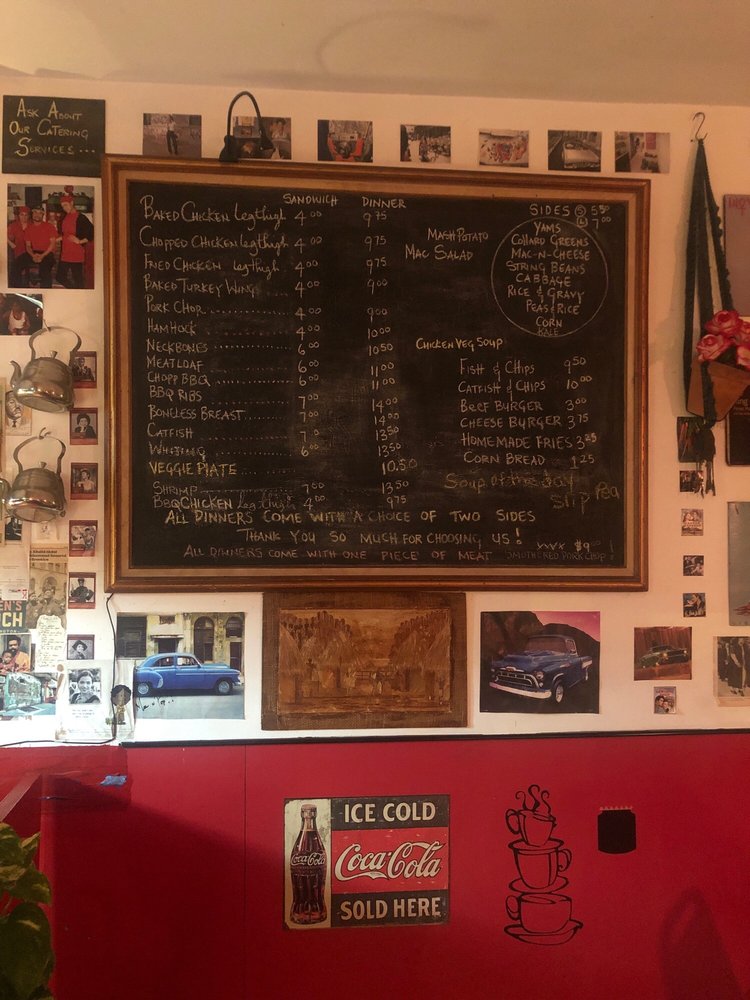 ASK ABOUT
OUR CATERING
SERVICES...
SANDWICH DINNER
BAKED CHICKEN Legthigh 4.00 9.75
CHOPPED CHICKEN legthigh 4.00 9.75
FRIED CHICKEN legthigh 4.00 9.75
BAKED TURKEY WING 4.00 9.00
PORK CHOP 4.00 9.00
HAM HOCK 4.00 10.00
NECKBONES 6.00 10.50
MEATLOAF 6.00 11.00
CHOPP BBQ 6.00 11.00
BBQ RIBS 7.00 14.00
BONELESS BREAST 7.00 14.00
CATFISH 7.00 13.50
WHITING 6.00 13.50
VEGGIE PLATE 10.50
SHRIMP 7.00 13.50
BBQ CHICKEN Legthigh 4.00 9.75
ALL DINNERS COME WITH A CHOICE OF TWO SIDES
THANK YOU SO MUCH FOR CHOOSING US!
ALL DINNERS COME WITH ONE PIECE OF MEAT
SMOTHERED PORK CHOP
$9
MASH POTATO
MAC SALAD
SIDES S 5.50
L 7.00
YAMS
COLLARD GREENS
MAC-N-CHEESE
STRING BEANS
CABBAGE
RICE & GRAVY
PEAS & RICE
CORN
KALE
CHICKEN VEG SOUP
FISH & CHIPS 9.50
CATFISH & CHIPS 10.00
BEEF BURGER 3.00
CHEESE BURGER 3.75
HOMEMADE FRIES 3.25
CORN BREAD 1.25
Soup of the day
Slip Pea
ICE COLD
Coca-Cola
Coca-Cola
SOLD HERE